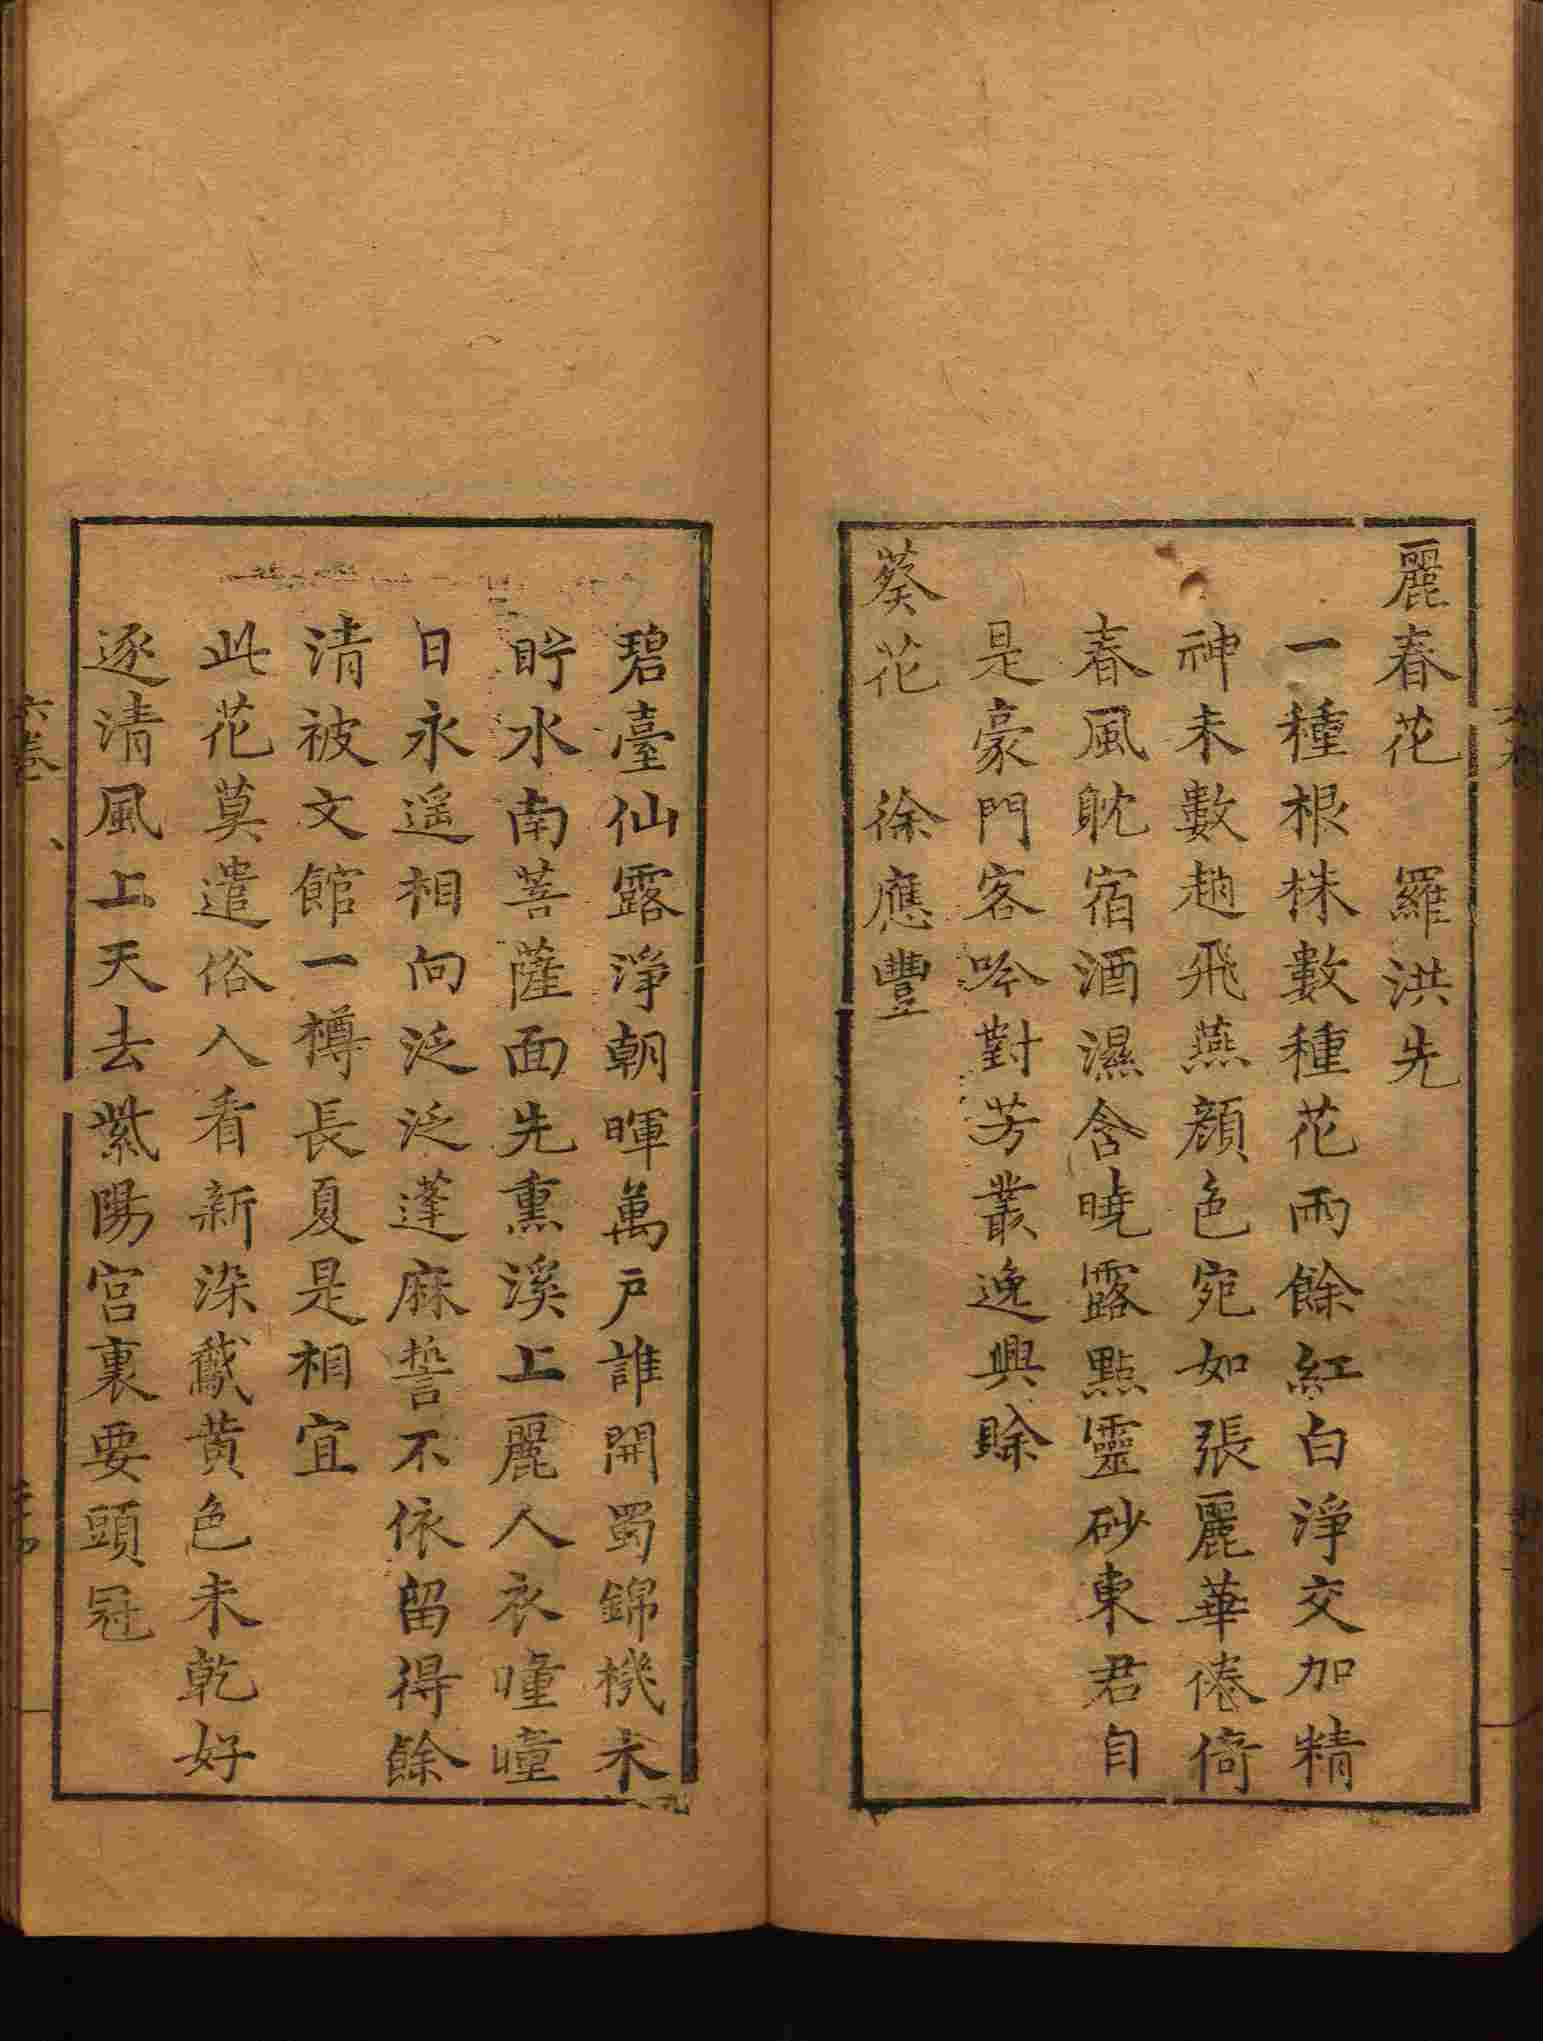 麗春花　羅洪先
一種根株數種花雨餘紅白淨交加精
神未數趙飛燕顏色宛如張麗華倦倚
春風躭宿酒濕含曉露點靈砂東君自
是豪門客吟對芳叢逸興賒
葵花　徐應豐
碧臺仙露淨朝暉萬戶誰開蜀錦機未
貯水南菩薩面先熏溪上麗人衣曈曈
日永遥相向泛泛蓬麻誓不依留得餘
清被文館一樽長夏是相宜
此花莫遣俗人看新染鵞黄色未乾好
逐清風上天去紫陽宮裏要頭冠
六卷